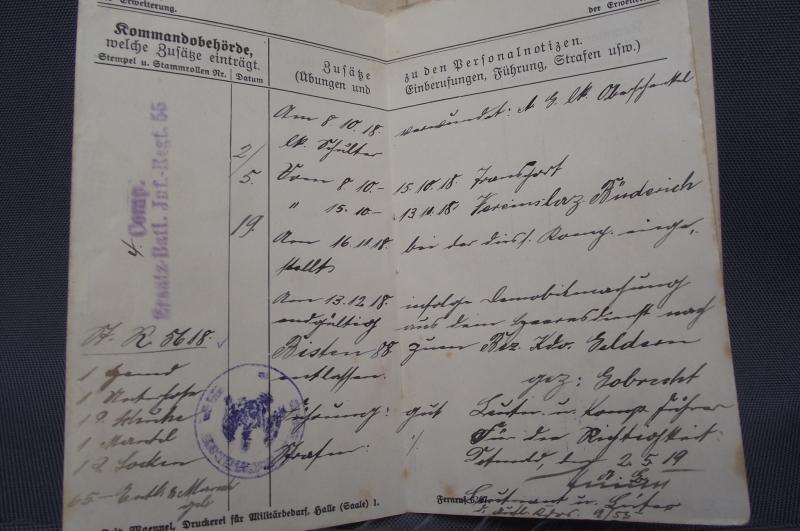 er Erweiterung.
der Erweiter
Kommandobehörde,
welche Zusätze einträgt.
Stempel u. Stammrollen Nr.
Datum
Zusätze zu den Personalnotizen.
(Übungen und Einberufungen, Führung, Strafen usw.)
4. Comp.
Ersatz-Batl. Inf.-Regt. 55
2/
5.
19.
Am 8.10.18. verwundet: A. G. lk. Oberschenkel
lk. Schulter
Vom 8.10.- 15.10.18. Transport
" 15.10.- 13.11.18 Vereinslaz. Büderich
Am 16.11.18 bei der diess. Komp. einge-
stellt
Am 13.12.18. infolge Demobilmachung
endgültig aus dem Heeresdienst nach
88 zum Bez. Kdo. Geldern
entlassen.
gez: Gobrecht
Führung: gut Leutn. u. Komp. Führer
Strafen: ./. Für die Richtigkeit.
den 2.5.19
Leutnant u.
R. 5618.
1 Hemd
1 Unterhose
1 Mantel
Socken
65.- Entl. & Marsch
geld
Maennel, Druckerei für Militärbedarf, Halle (Saale) 1.
Fernruf